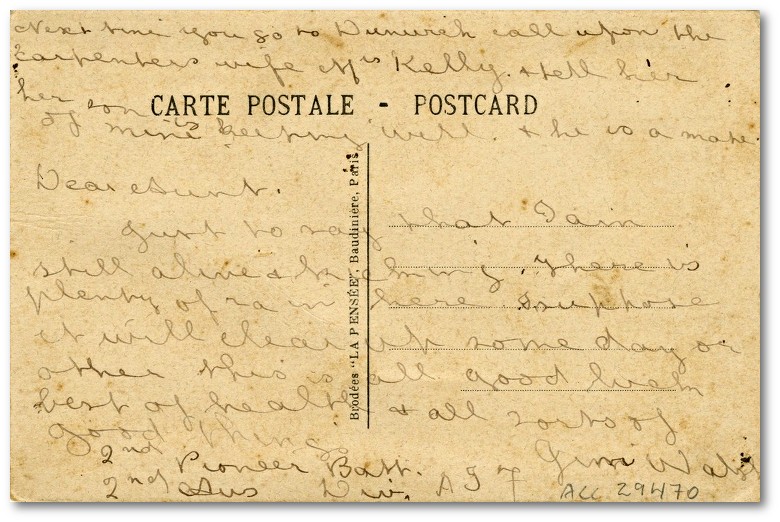 Next time you go to Dunwich call upon the
Carpenters wife Mrs Kelly. & tell her
her son is keeping well. & he is a mate
of mine
CARTE POSTALE - POSTCARD
Dear Aunt.
Just to say that I am
still alive & kicking. There is
plenty of rain here I suppose
it will clear up some day or
other this is all good luck
best of health & all sorts of
good things
Jim
2nd Pioneer Batt.
2nd Aus Div. A I F
Brodées "LA PENSÉE", Baudinière, Paris
ACC 29470